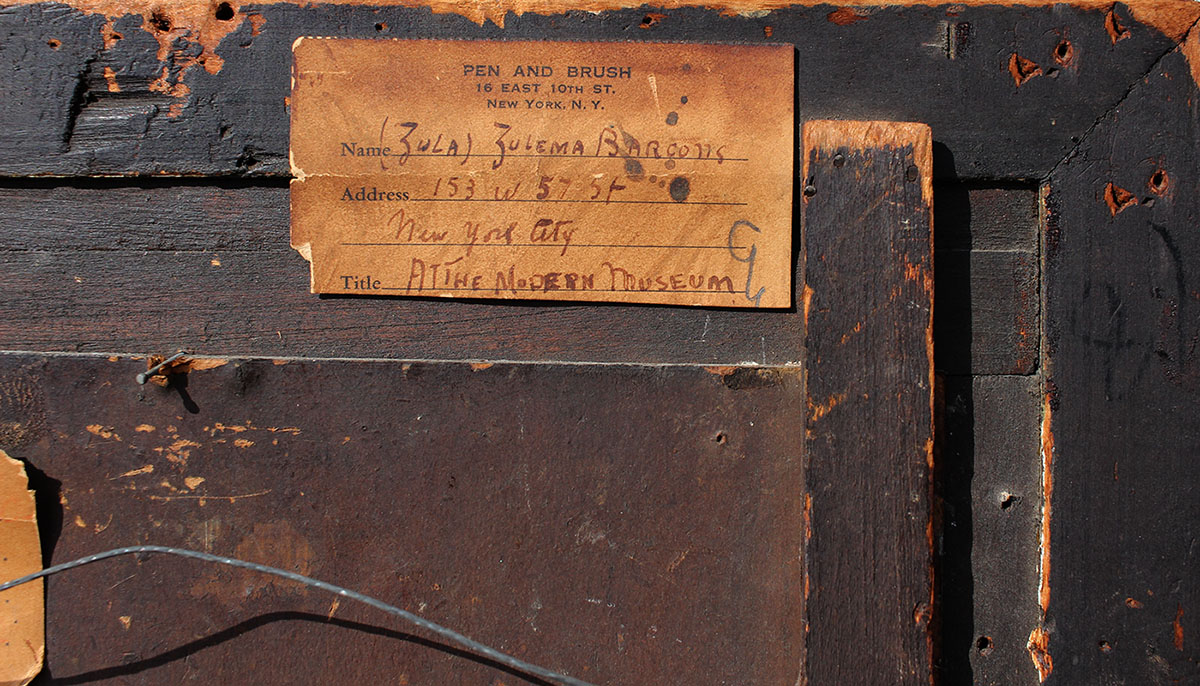 PEN AND BRUSH
16 EAST 10TH ST.
NEW YORK, N. Y.
Name (ZULA) ZULEMA BARCONS
Address 153 W 57 St
New York City
Title AT THE MODERN MUSEUM